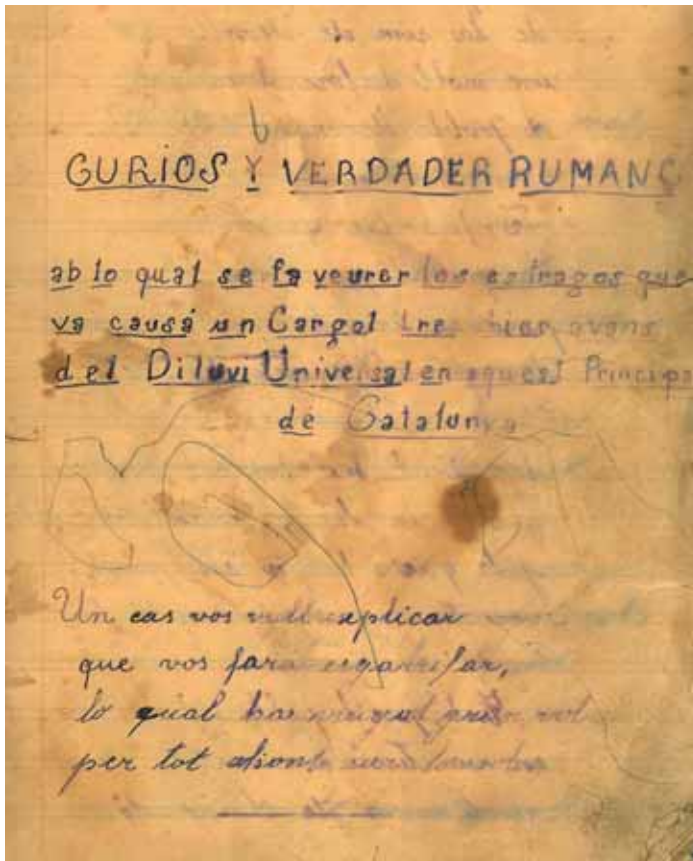 CURIOS Y VERDADER RUMANÇ
ab lo qual se fa veurer los estragos que
va causá un Cargol tres dies avans
del Diluvi Universal en aquest Princip
de Catalunya
Un cas vos vull explicar
que vos fara esgarrifar,
lo qual ha
per tot